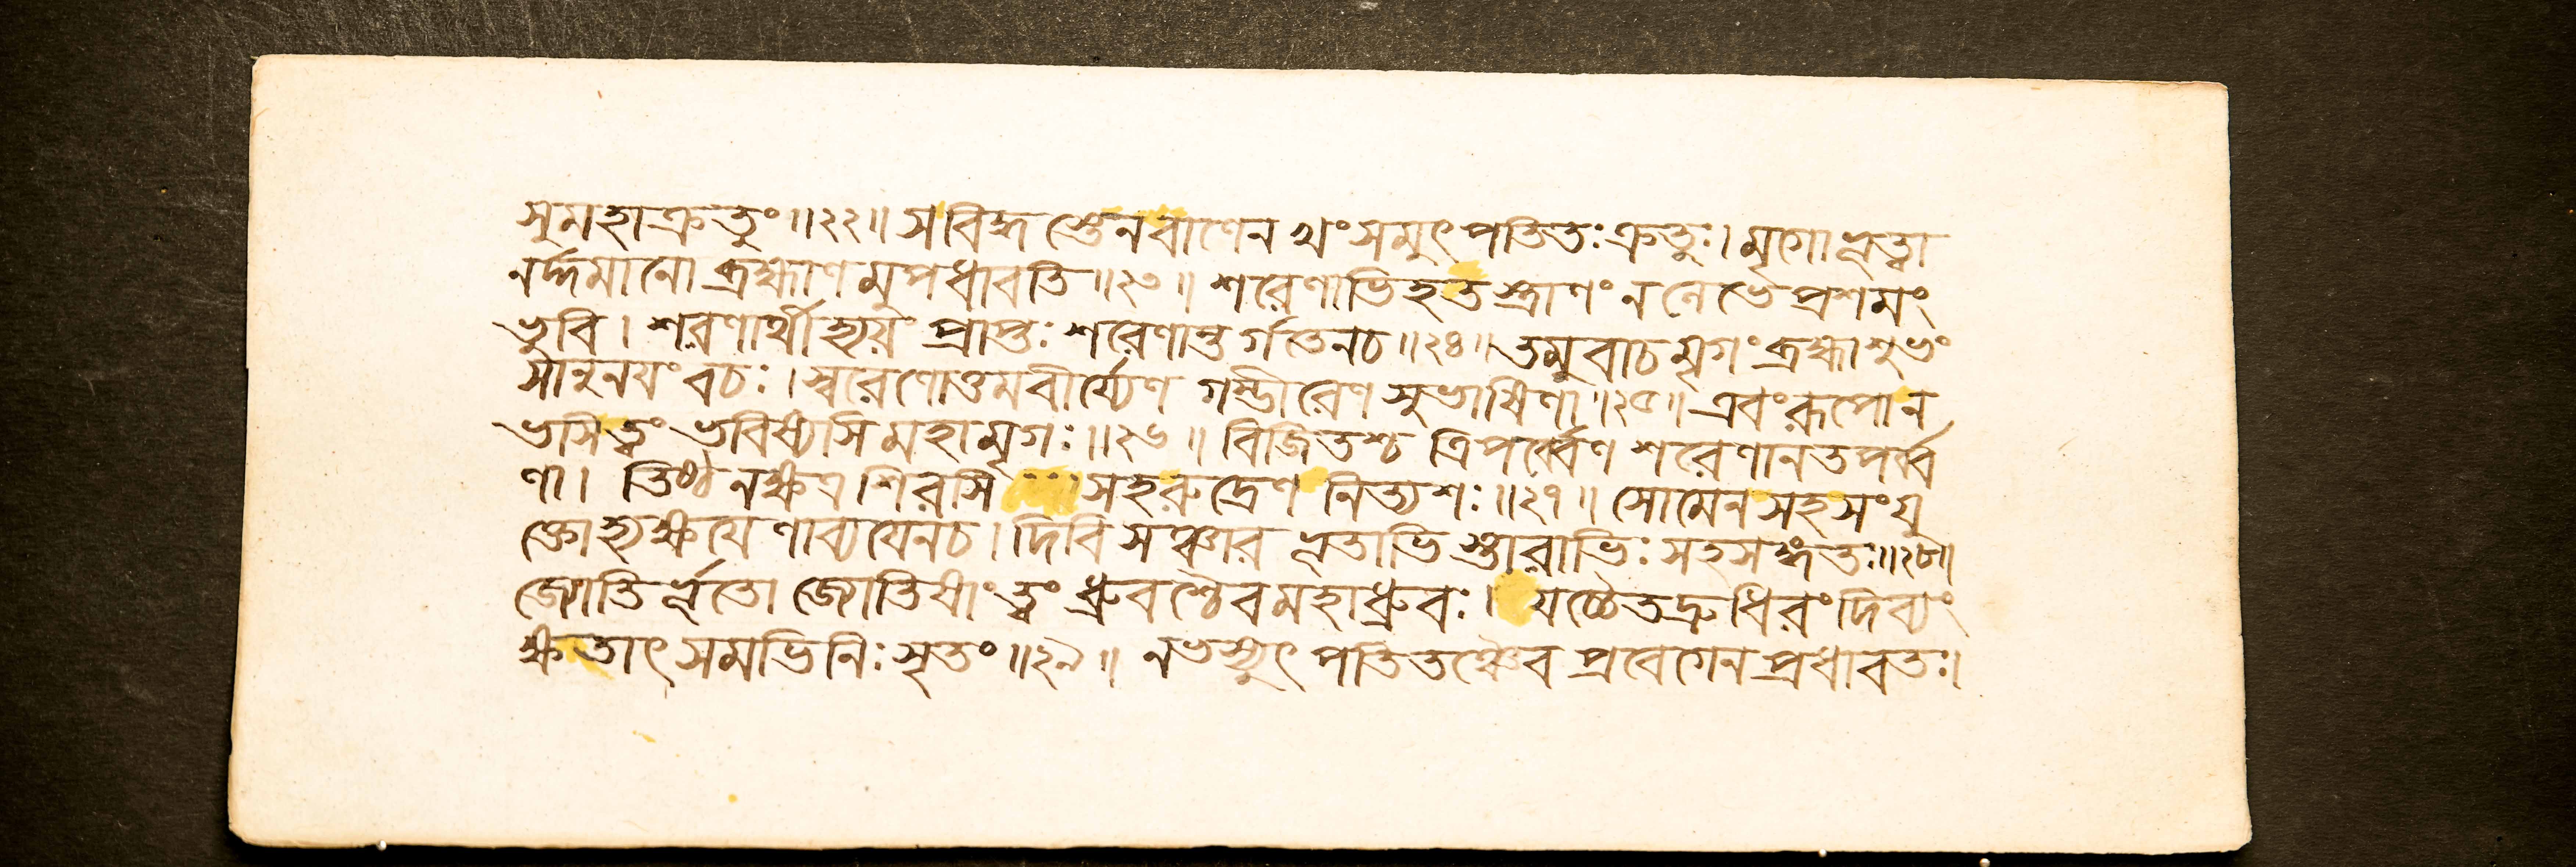 সুমহাক্রতুং॥২২॥ স বিদ্ধস্তেন বাণেন খং সমুৎপতিতঃ ক্রতুঃ। মৃগো ভূত্বা
নর্দ্দমানো ব্রহ্মাণমুপধাবতি॥২৩॥ শরেণাভিহতস্ত্রাণং ন লেভে প্রশমং
ভুবি। শরণার্থী হ্যয়ং প্রাপ্তঃ শরেণান্তর্গতেন চ॥২৪॥ তমুবাচ মৃগং ব্রহ্মা শুভং
সানুনযং বচঃ। স্বরেণোত্তমবীর্য্যেণ গম্ভীরেণ সুভাষিণা॥২৫॥ এবংরূপো ন
ভসি ত্বং ভবিষ্যসি মহামৃগঃ॥২৬॥ বিজিতশ্চ ত্রিপর্ব্বেণ শরেণানতপর্ব্ব
ণা। তিষ্ঠ নক্ষত্রশিরসি সহ রুদ্রেণ নিত্যশঃ॥২৭॥ সোমেন সহ সংযু
ক্তো হ্যক্ষযেণাব্যযেন চ। দিবি সঞ্চার ভূতাভিস্তারাভিঃ সহ সঙ্গতঃ॥২৮॥
জ্যোতির্ভূতো জ্যোতিষাং ত্বং ধ্রুবশ্চৈব মহাধ্রুবঃ। যচ্চৈতদ্রুধিরং দিব্যং
ক্ষতাৎ সমভিনিঃসৃতং॥২৯॥ নভস্যুৎপতিতঞ্চৈব প্রবেগেন প্রধাবতঃ।